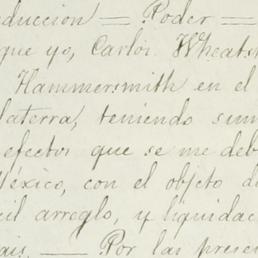 duccion — Poder —
que yo, Carlos Wheats
Hammersmith en el
laterra, teniendo sum
efectos que se me deb
México, con el objeto d
cil arreglo, y liquidac
ais. — Por las presen